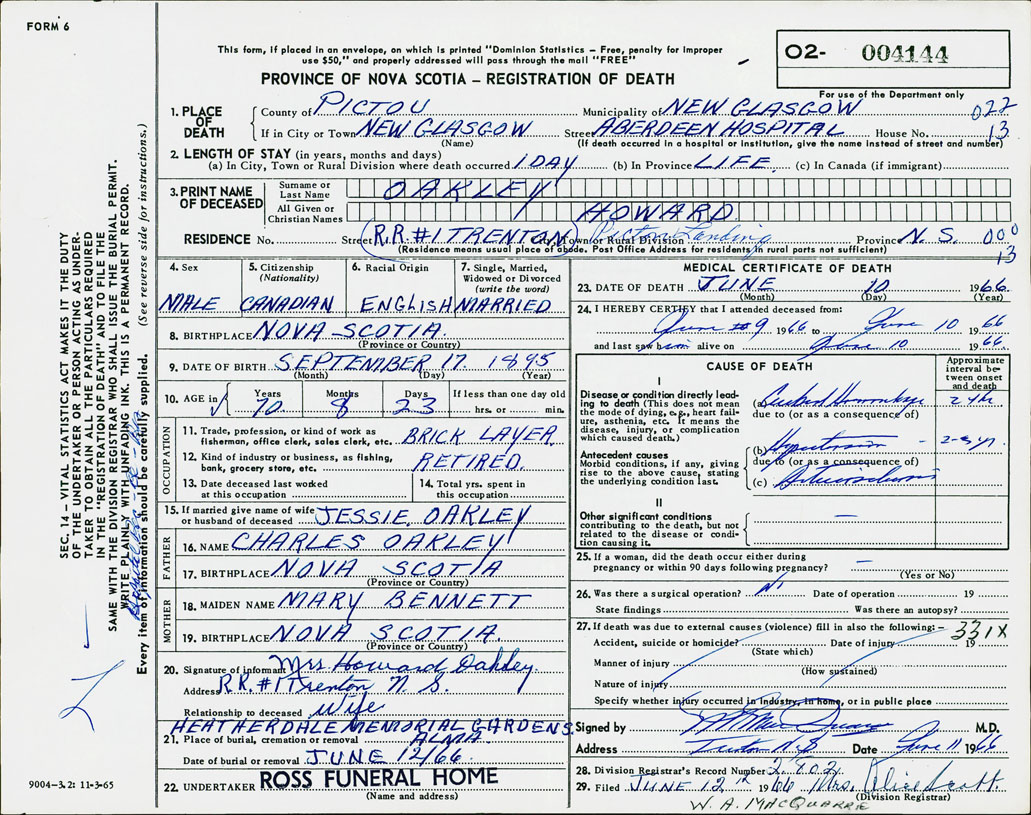 FORM 6
This form, if placed in an envelope, on which is printed "Dominion Statistics – Free, penalty for improper
use $50," and properly addressed will pass through the mail "FREE"
PROVINCE OF NOVA SCOTIA – REGISTRATION OF DEATH
02- 004144
For use of the Department only
1. PLACE OF DEATH
County of PICTOU Municipality of NEW GLASGOW 022
If in City or Town NEW GLASGOW Street ABERDEEN HOSPITAL House No. 13
(Name) (If death occurred in a hospital or institution, give the name instead of street and number)
2. LENGTH OF STAY (in years, months and days)
(a) In City, Town or Rural Division where death occurred 1 DAY (b) In Province LIFE (c) In Canada (if immigrant)
3. PRINT NAME OF DECEASED
Surname or Last Name OAKLEY
All Given or Christian Names HOWARD
RESIDENCE No. Street R.R. #1 TRENTON City, Town or Rural Division Pictou Landing Province N.S. 000
(Residence means usual place of abode. Post Office Address for residents in rural parts not sufficient) 13
4. Sex MALE
5. Citizenship (Nationality) CANADIAN
6. Racial Origin ENGLISH
7. Single, Married, Widowed or Divorced (write the word) MARRIED
8. BIRTHPLACE NOVA SCOTIA.
(Province or Country)
9. DATE OF BIRTH SEPTEMBER 17. 1895
(Month) (Day) (Year)
10. AGE in Years 70 Months 8 Days 23 If less than one day old hrs. or min.
OCCUPATION
11. Trade, profession, or kind of work as fisherman, office clerk, sales clerk, etc. BRICK LAYER
12. Kind of industry or business, as fishing, bank, grocery store, etc. RETIRED.
13. Date deceased last worked at this occupation
14. Total yrs. spent in this occupation
15. If married give name of wife or husband of deceased JESSIE OAKLEY
FATHER
16. NAME CHARLES OAKLEY
17. BIRTHPLACE NOVA SCOTIA
(Province or Country)
MOTHER
18. MAIDEN NAME MARY BENNETT
19. BIRTHPLACE NOVA SCOTIA.
(Province or Country)
20. Signature of informant Mrs Howard Oakley.
Address R.R. #1 Trenton N.S.
Relationship to deceased Wife
HEATHERDALE MEMORIAL GARDENS.
21. Place of burial, cremation or removal ALMA.
Date of burial or removal JUNE 12/66
22. UNDERTAKER ROSS FUNERAL HOME
(Name and address)
MEDICAL CERTIFICATE OF DEATH
23. DATE OF DEATH JUNE 10 1966.
(Month) (Day) (Year)
24. I HEREBY CERTIFY that I attended deceased from:
June 9 1966 to June 10 1966
and last saw him alive on June 10 1966
CAUSE OF DEATH
Approximate interval between onset and death
I
Disease or condition directly leading to death (This does not mean the mode of dying, e.g., heart failure, asthenia, etc. It means the disease, injury, or complication which caused death.)
(a)
due to (or as a consequence of)
Antecedent causes
Morbid conditions, if any, giving rise to the above cause, stating the underlying condition last.
(b)
due to (or as a consequence of)
(c)
II
Other significant conditions contributing to the death, but not related to the disease or condition causing it.
25. If a woman, did the death occur either during pregnancy or within 90 days following pregnancy?
(Yes or No)
26. Was there a surgical operation? No Date of operation 19
State findings Was there an autopsy?
27. If death was due to external causes (violence) fill in also the following:- 331X
Accident, suicide or homicide? Date of injury 19
(State which)
Manner of injury
(How sustained)
Nature of injury
Specify whether injury occurred in industry, in home, or in public place
Signed by M.D.
Address Date June 11 1966
28. Division Registrar's Record Number
29. Filed JUNE 12th 1966 Mrs. Alice Scott.
(Division Registrar)
W. A. MACQUARRIE
SEC. 14 – VITAL STATISTICS ACT MAKES IT THE DUTY
OF THE UNDERTAKER OR PERSON ACTING AS UNDER-
TAKER TO OBTAIN ALL THE PARTICULARS REQUIRED
IN THE "REGISTRATION OF DEATH" AND TO FILE THE
SAME WITH THE DIVISION REGISTRAR WHO SHALL ISSUE THE BURIAL PERMIT.
WRITE PLAINLY WITH UNFADING INK. THIS IS A PERMANENT RECORD.
Every item of information should be carefully supplied. (See reverse side for instructions.)
9004-3.2: 11-3-65